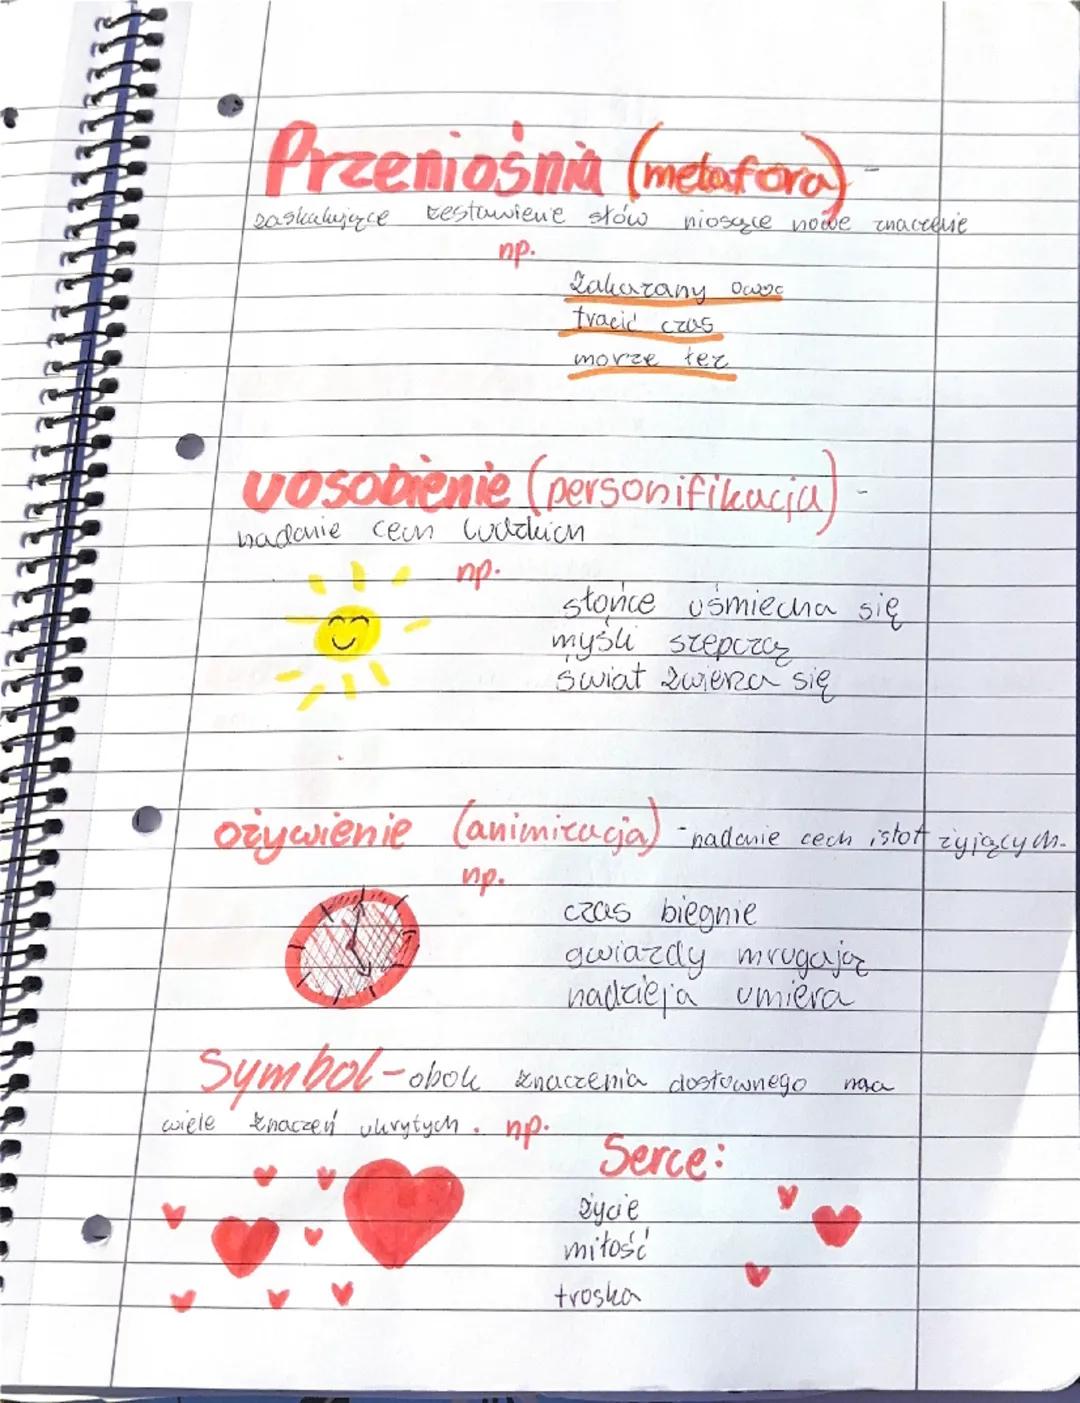 Przeniośnia (metafora) -
zaskakujące zestawienie słów niosące nowe znaczenie
np.
Zakazany owoc
tracić czas
morze łez
uosobienie (personifikacja) -
nadanie cech ludzkich
np.
słońce uśmiecha się
myśli szepczą
świat zwierza się
ożywienie (animizacja) - nadanie cech istot żyjących.
np.
czas biegnie
gwiazdy mrugają
nadzieja umiera
Symbol - obok znaczenia dosłownego ma
wiele znaczeń ukrytych. np.
Serce:
życie
miłość
troska